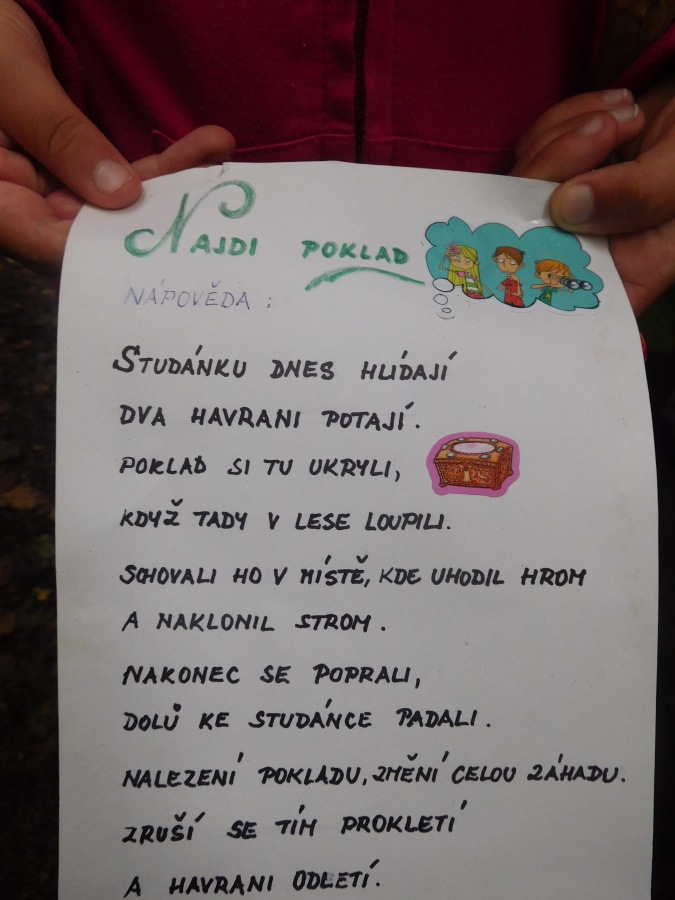 NAJDI POKLAD
NÁPOVĚDA :
STUDÁNKU DNES HLÍDAJÍ
DVA HAVRANI POTAJÍ.
POKLAD SI TU UKRYLI,
KDYŽ TADY V LESE LOUPILI.
SCHOVALI HO V MÍSTĚ, KDE UHODIL HROM
A NAKLONIL STROM.
NAKONEC SE POPRALI,
DOLŮ KE STUDÁNCE PADALI.
NALEZENÍ POKLADU, ZMĚNÍ CELOU ZÁHADU.
ZRUŠÍ SE TÍM PROKLETÍ
A HAVRANI ODLETÍ.